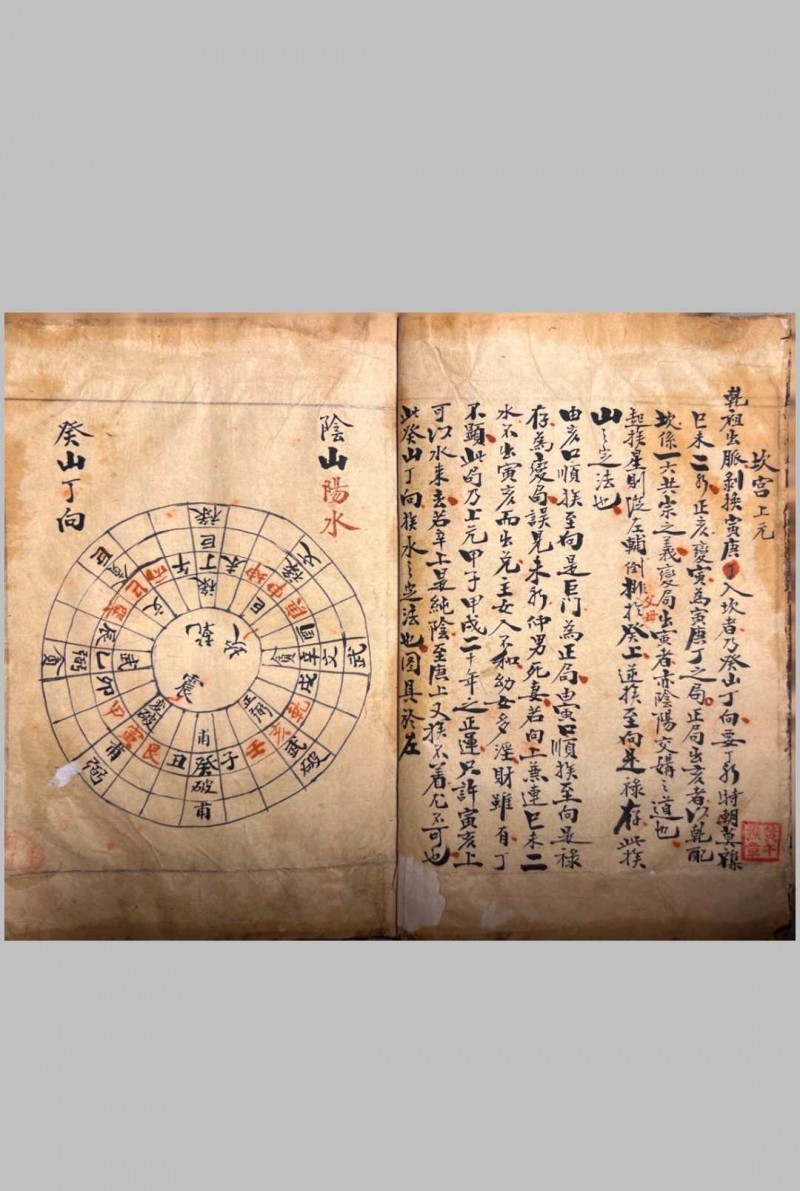 坎宮上元
乾祖出脈剝換寅庚丁入坎者乃癸山丁向要丁水時朝莫雜
巳未二水正亥變寅為寅庚丁之局正局出亥者以乾配
坎係一六共宗之義變局出寅者亦陰陽交媾之道也
起挨星則從左輔倒排父母於癸上逆挨至向是祿存此挨
山之定法也
由亥口順挨至向是巨門為正局由寅口順挨至向是祿
存為變局誤見未水仲男死妻若向上兼連巳未二
水不出寅亥而出兌主女人不和幼女多淫財雖有丁
不顯此局乃上元甲子甲戌二十年之正運只許寅亥上
可以水來去若辛上是純陰至庚上又挨不着尤不可也
此癸山丁向挨水之定法也圖具於左
陰山陽水
癸山丁向
祿
巨
午丁未
祿
坤申
文
祿
巨
武
文
辛
貪
戌
乾
武
破
壬
子癸丑
甫
破
甫
艮
寅
甫
弼
卯乙辰
武
弼
貪
巨
文
乾
坎
震